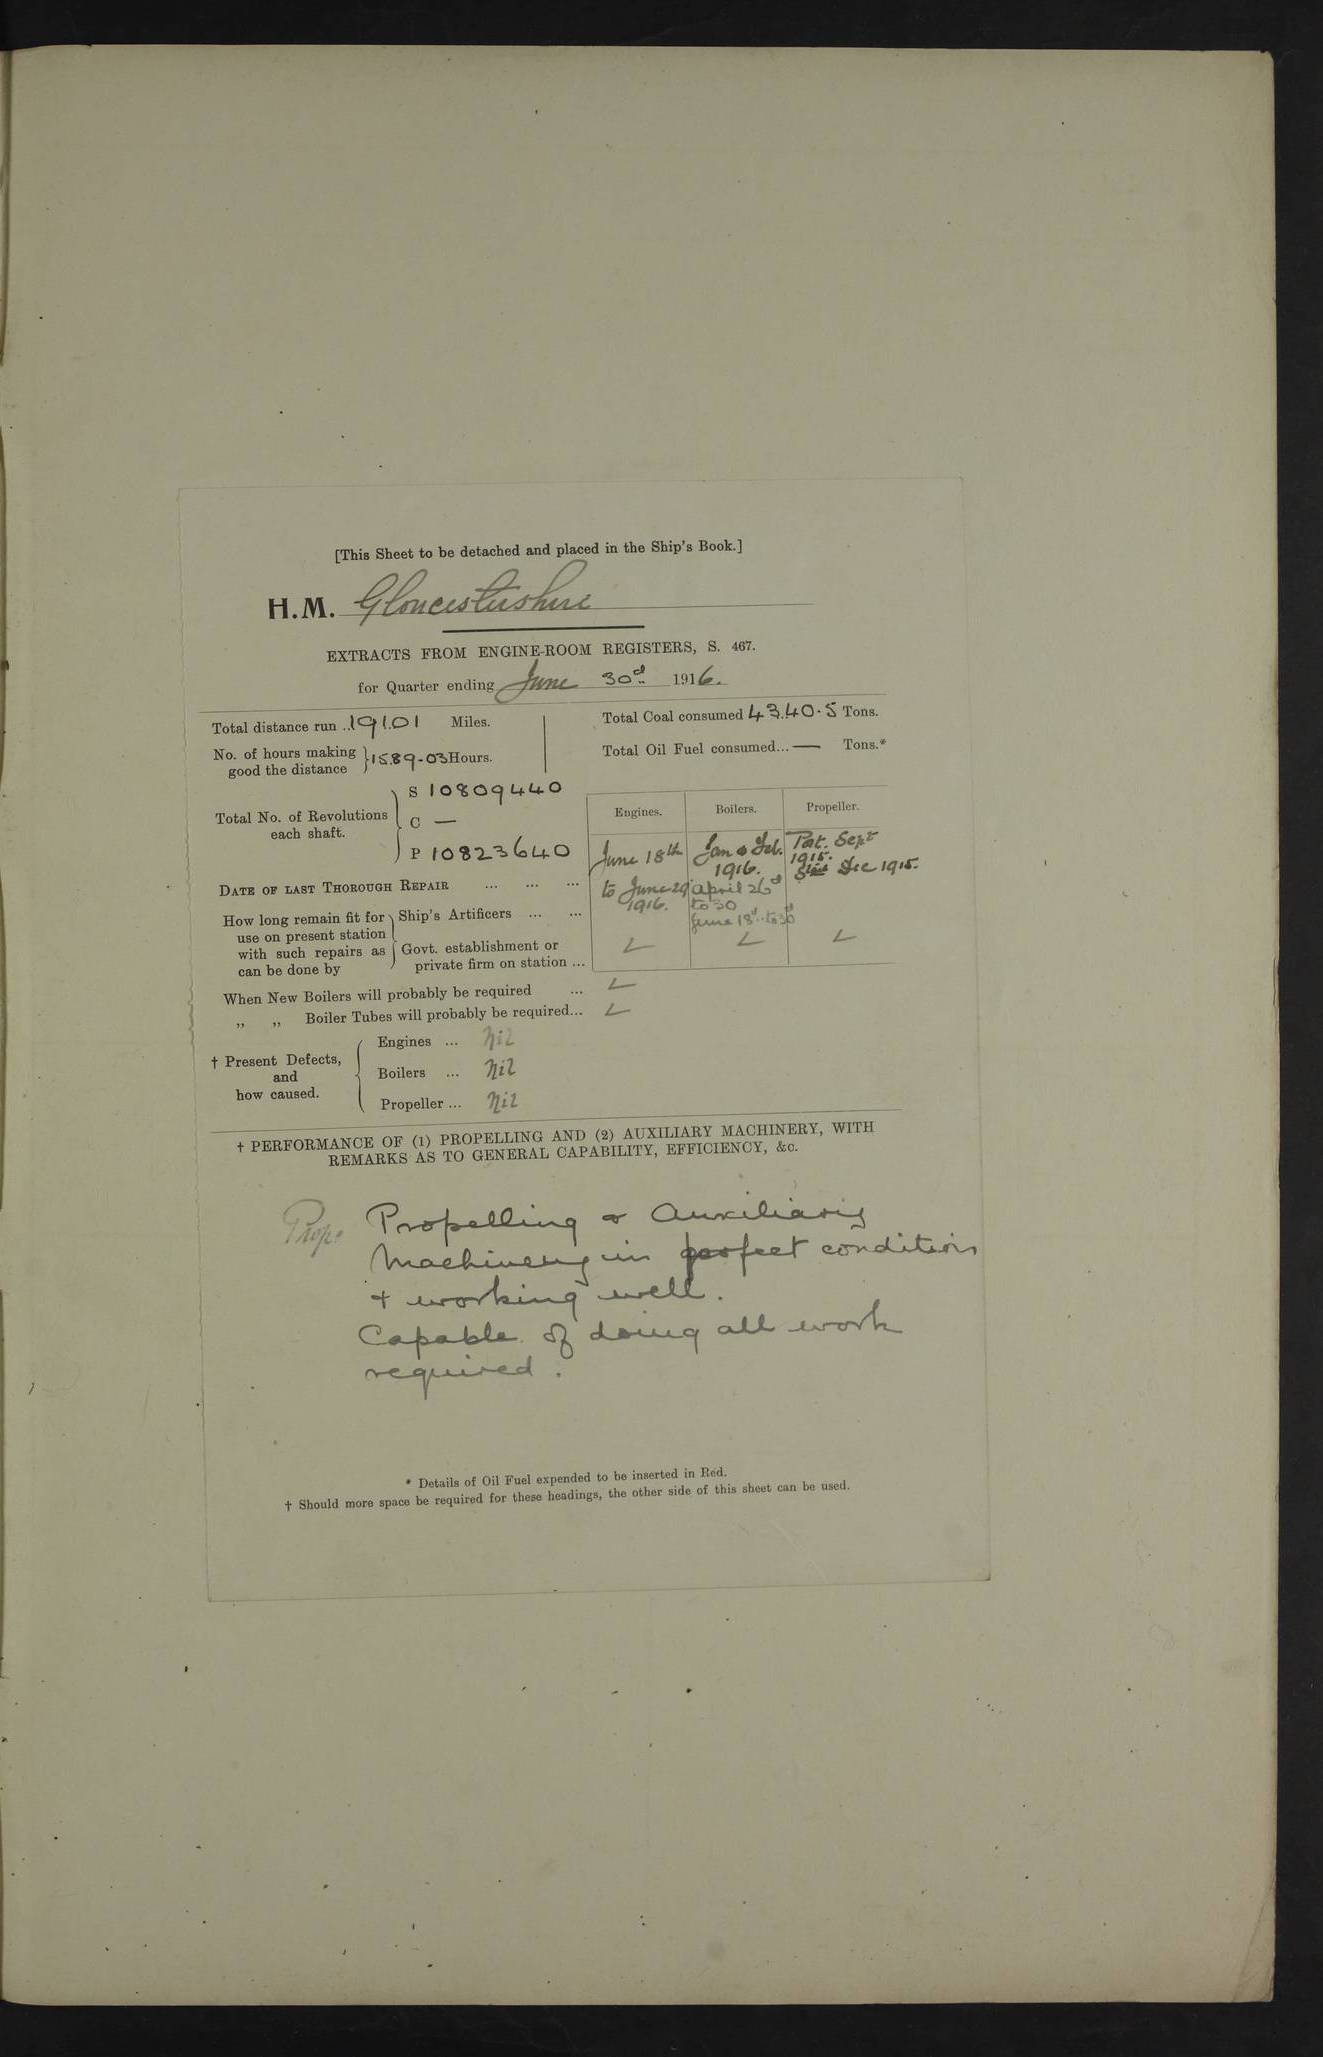 [This Sheet to be detached and placed in the Ship's Book.]
H.M. Gloucestershire
EXTRACTS FROM ENGINE-ROOM REGISTERS, S. 467.
for Quarter ending June 30d 1916.
Total distance run .. 19101 Miles.
Total Coal consumed 4340.5 Tons.
No. of hours making good the distance } 1589-03 Hours.
Total Oil Fuel consumed... — Tons.*
Total No. of Revolutions each shaft.
S 10809440
C —
P 10823640
Engines. Boilers. Propeller.
DATE OF LAST THOROUGH REPAIR ... ... ...
June 18th
to June 29
1916.
Jan & Feb.
1916.
April 26d
to 30
June 18d to 30d
Port. Sept
1915.
Dec 1915.
How long remain fit for
use on present station
with such repairs as
can be done by
Ship's Artificers ... ...
Govt. establishment or
private firm on station ...
When New Boilers will probably be required ...
„ „ Boiler Tubes will probably be required...
† Present Defects,
and
how caused.
Engines ... Nil
Boilers ... Nil
Propeller ... Nil
† PERFORMANCE OF (1) PROPELLING AND (2) AUXILIARY MACHINERY, WITH
REMARKS AS TO GENERAL CAPABILITY, EFFICIENCY, &c.
Prop: Propelling & Auxiliary
Machinery in perfect condition
& working well.
Capable of doing all work
required.
* Details of Oil Fuel expended to be inserted in Red.
† Should more space be required for these headings, the other side of this sheet can be used.